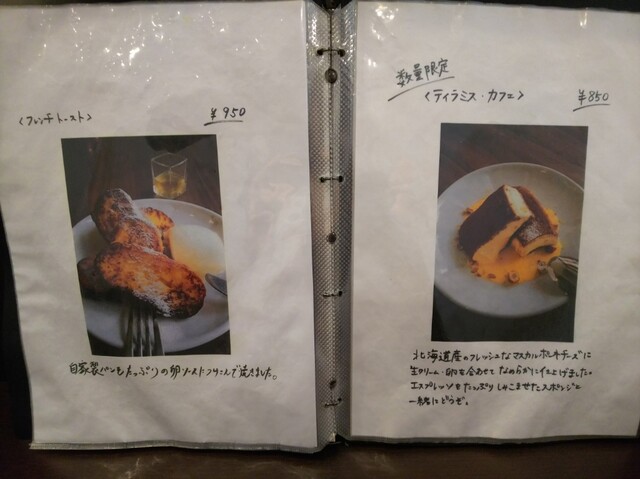 〈フレンチトースト〉
¥950
自家製パンをたっぷりの卵ソースにつけこんで焼きました。
数量限定
〈ティラミス・カフェ〉
¥850
北海道産のフレッシュなマスカルポーネチーズに
生クリーム・卵を合わせてなめらかに仕上げました。
エスプレッソをたっぷりしみこませたスポンジと
一緒にどうぞ。